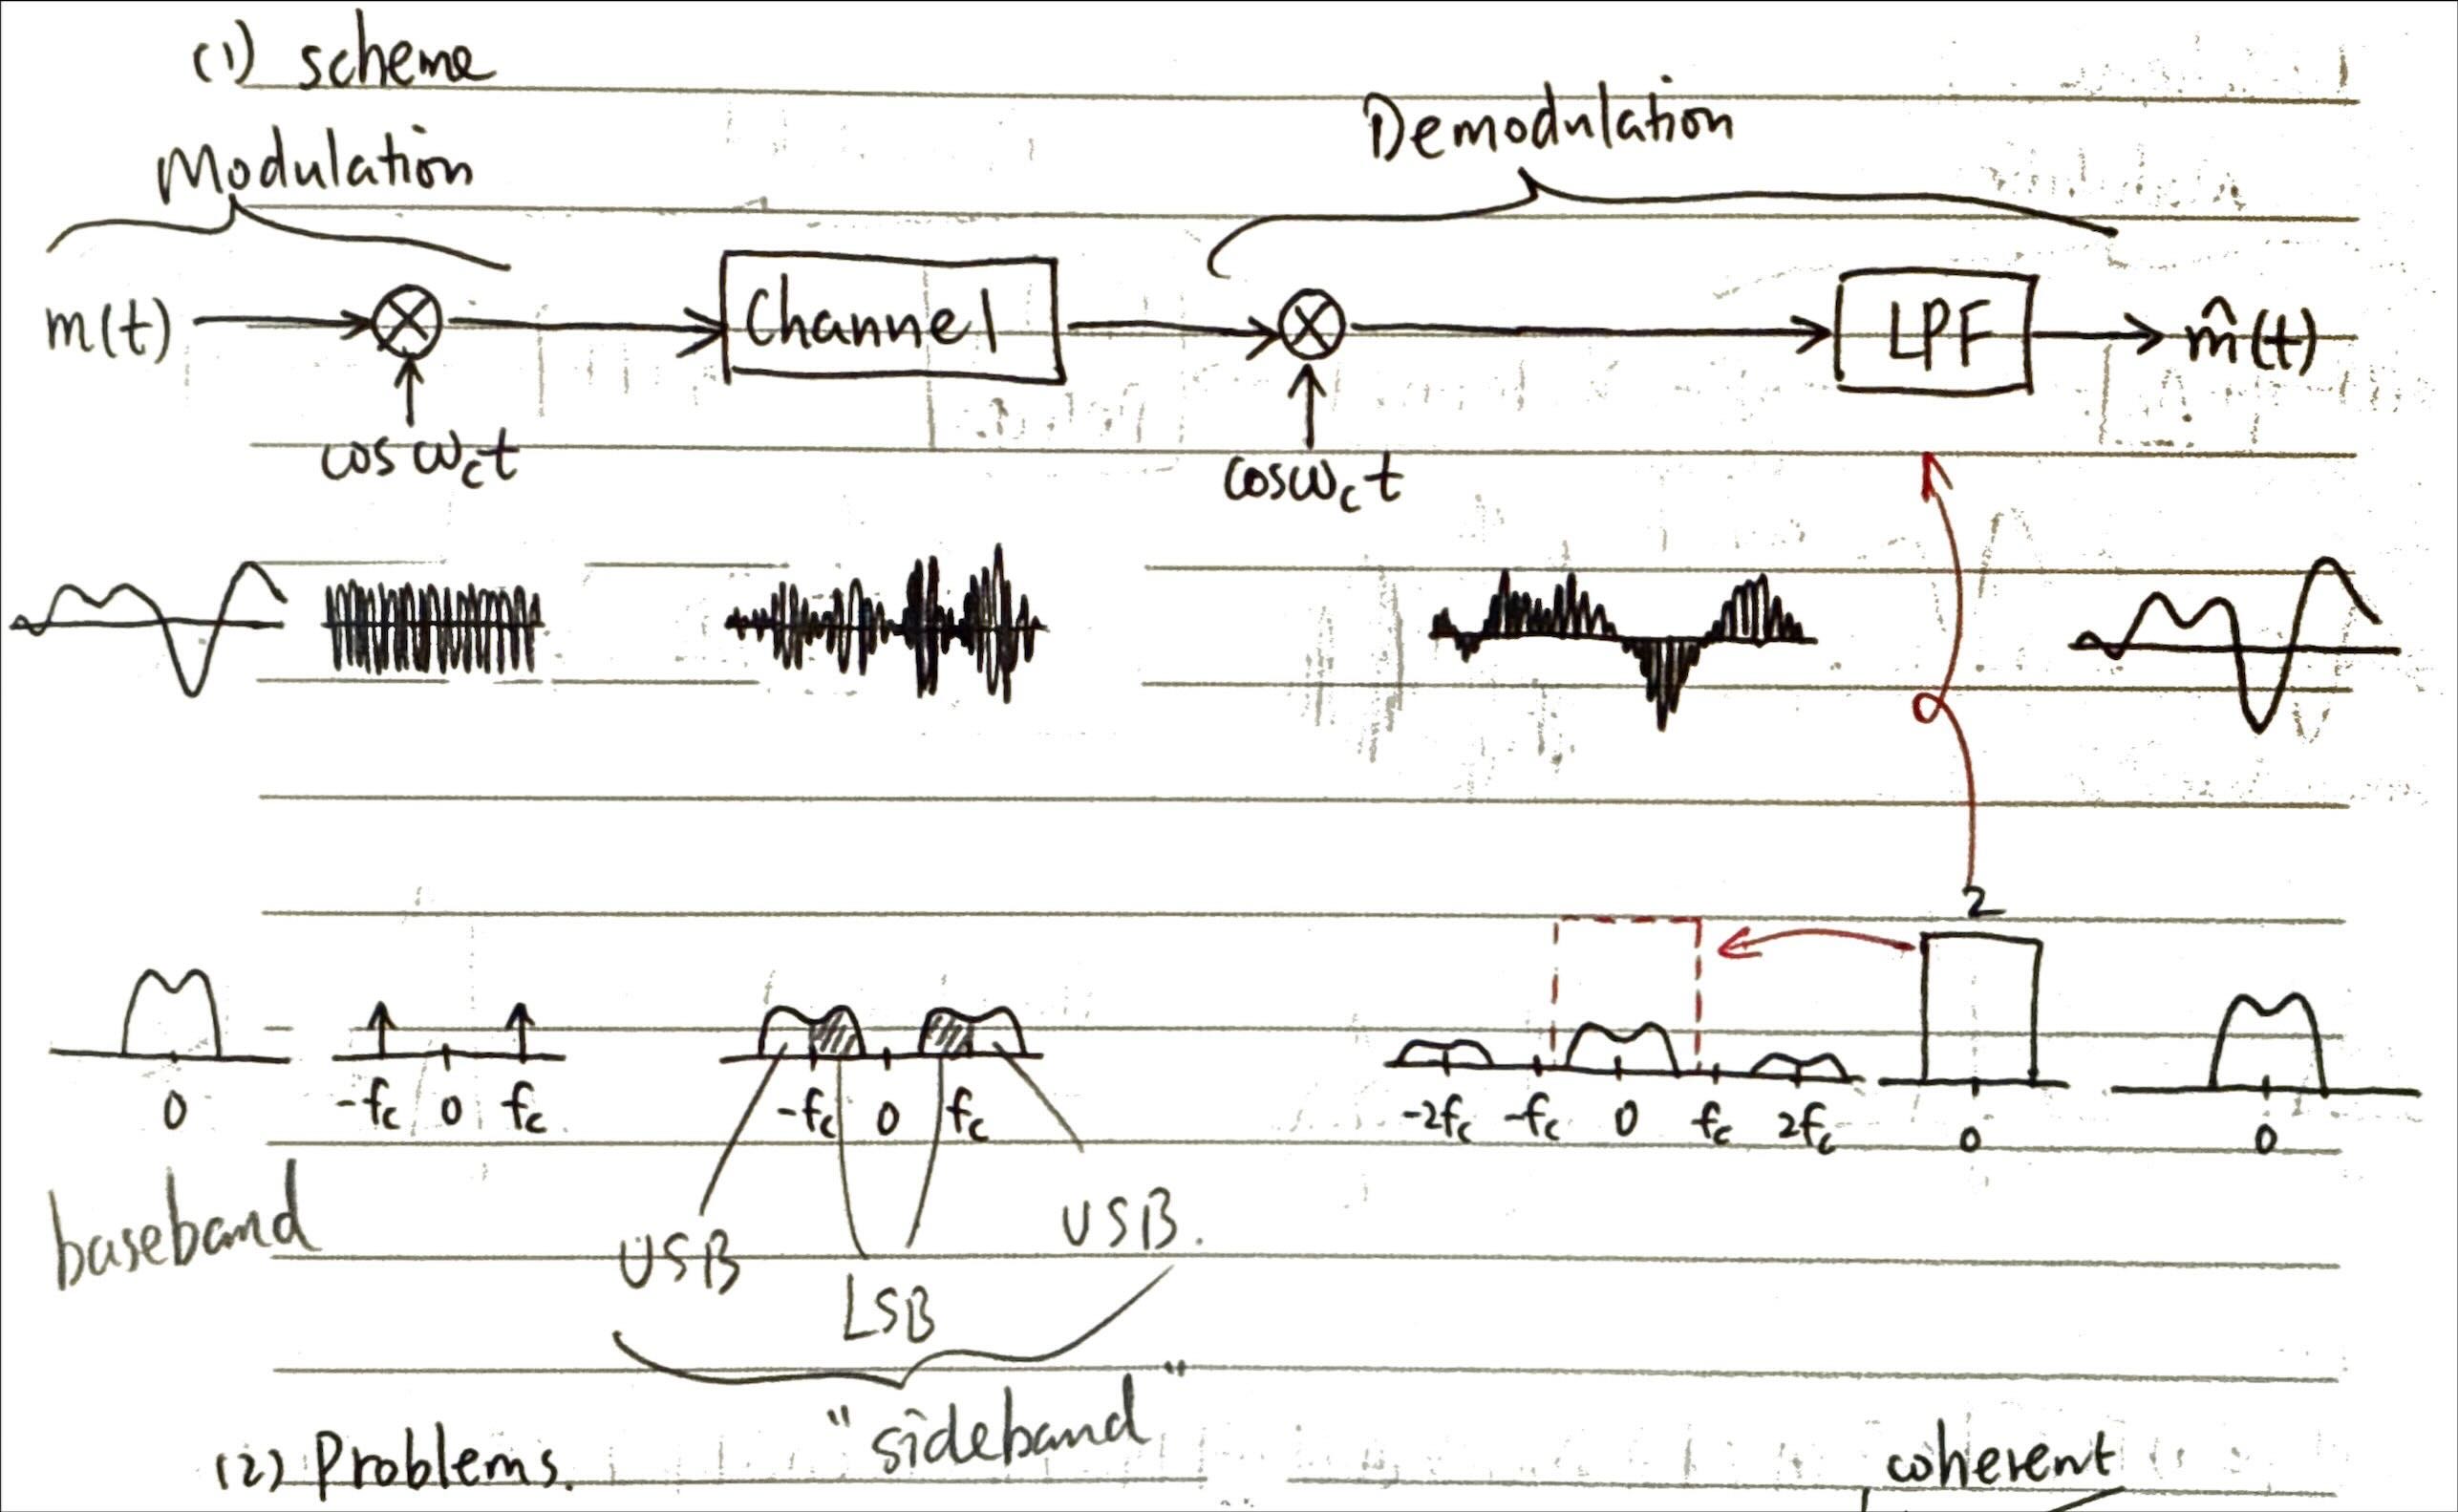 (1) scheme
Modulation
Demodulation
m(t)
Channel
LPF
m̂(t)
cos ω_c t
cos ω_c t
2
0
-f_c 0 f_c
-f_c 0 f_c
-2f_c -f_c 0 f_c 2f_c
0
0
baseband
USB
LSB
USB.
"sideband"
(2) Problems.
coherent